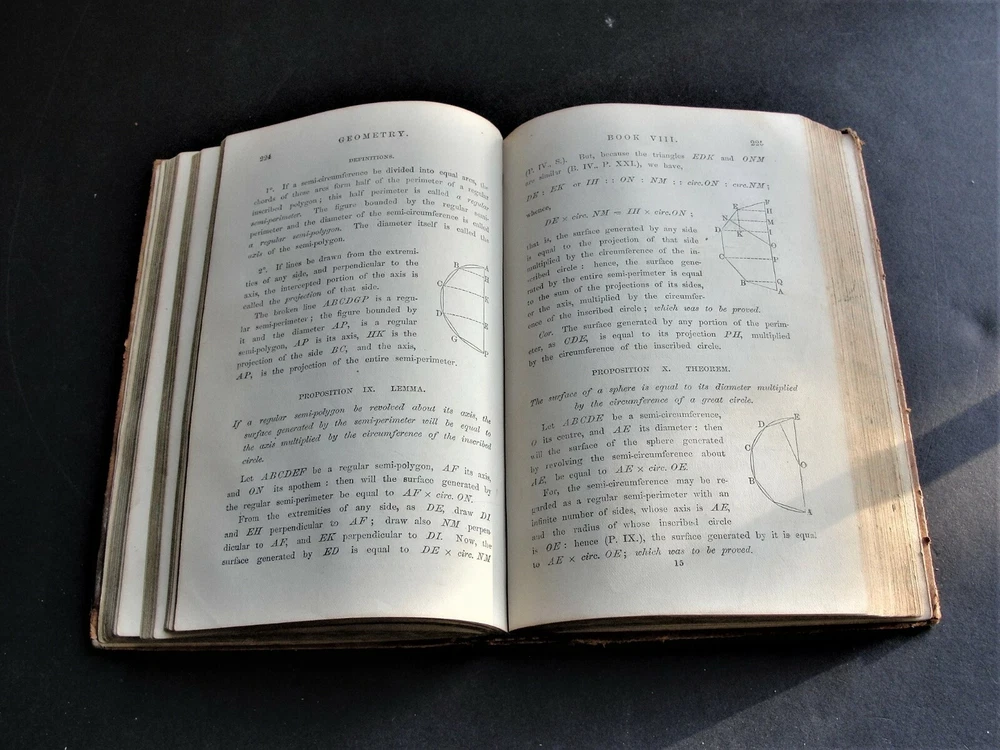 224
GEOMETRY.
DEFINITIONS.
1°. If a semi-circumference be divided into equal arcs, the
chords of these arcs form half of the perimeter of a regular
inscribed polygon; this half perimeter is called a regular
semi-perimeter. The figure bounded by the regular semi-
perimeter and the diameter of the semi-circumference is called
a regular semi-polygon. The diameter itself is called the
axis of the semi-polygon.
2°. If lines be drawn from the extremi-
ties of any side, and perpendicular to the
axis, the intercepted portion of the axis is
called the projection of that side.
The broken line ABCDGP is a regu-
lar semi-perimeter; the figure bounded by
it and the diameter AP, is a regular
semi-polygon, AP is its axis, HK is the
projection of the side BC, and the axis,
AP, is the projection of the entire semi-perimeter.
B
A
H
C
K
D
G
P
PROPOSITION IX. LEMMA.
If a regular semi-polygon be revolved about its axis, the
surface generated by the semi-perimeter will be equal to
the axis multiplied by the circumference of the inscribed
circle.
Let ABCDEF be a regular semi-polygon, AF its axis,
and ON its apothem: then will the surface generated by
the regular semi-perimeter be equal to AF × circ. ON.
From the extremities of any side, as DE, draw DI
and EH perpendicular to AF; draw also NM perpen
dicular to AF, and EK perpendicular to DI. Now, the
surface generated by ED is equal to DE × circ. NM
BOOK VIII.
225
(P. IV., S.). But, because the triangles EDK and ONM
are similar (B. IV., P. XXI.), we have,
DE : EK or IH :: ON : NM :: circ. ON : circ. NM;
whence,
DE × circ. NM = IH × circ. ON;
that is, the surface generated by any side
is equal to the projection of that side
multiplied by the circumference of the in-
scribed circle: hence, the surface gene-
rated by the entire semi-perimeter is equal
to the sum of the projections of its sides,
or the axis, multiplied by the circumfer-
ence of the inscribed circle; which was to be proved.
F
E
H
N
M
D
K
I
O
C
P
B
Q
A
Cor. The surface generated by any portion of the perim-
eter, as CDE, is equal to its projection PH, multiplied
by the circumference of the inscribed circle.
PROPOSITION X. THEOREM.
The surface of a sphere is equal to its diameter multiplied
by the circumference of a great circle.
Let ABCDE be a semi-circumference,
O its centre, and AE its diameter: then
will the surface of the sphere generated
by revolving the semi-circumference about
AE, be equal to AE × circ. OE.
For, the semi-circumference may be re-
garded as a regular semi-perimeter with an
infinite number of sides, whose axis is AE,
and the radius of whose inscribed circle
is OE: hence (P. IX.), the surface generated by it is equal
to AE × circ. OE; which was to be proved.
E
D
C
O
B
A
15